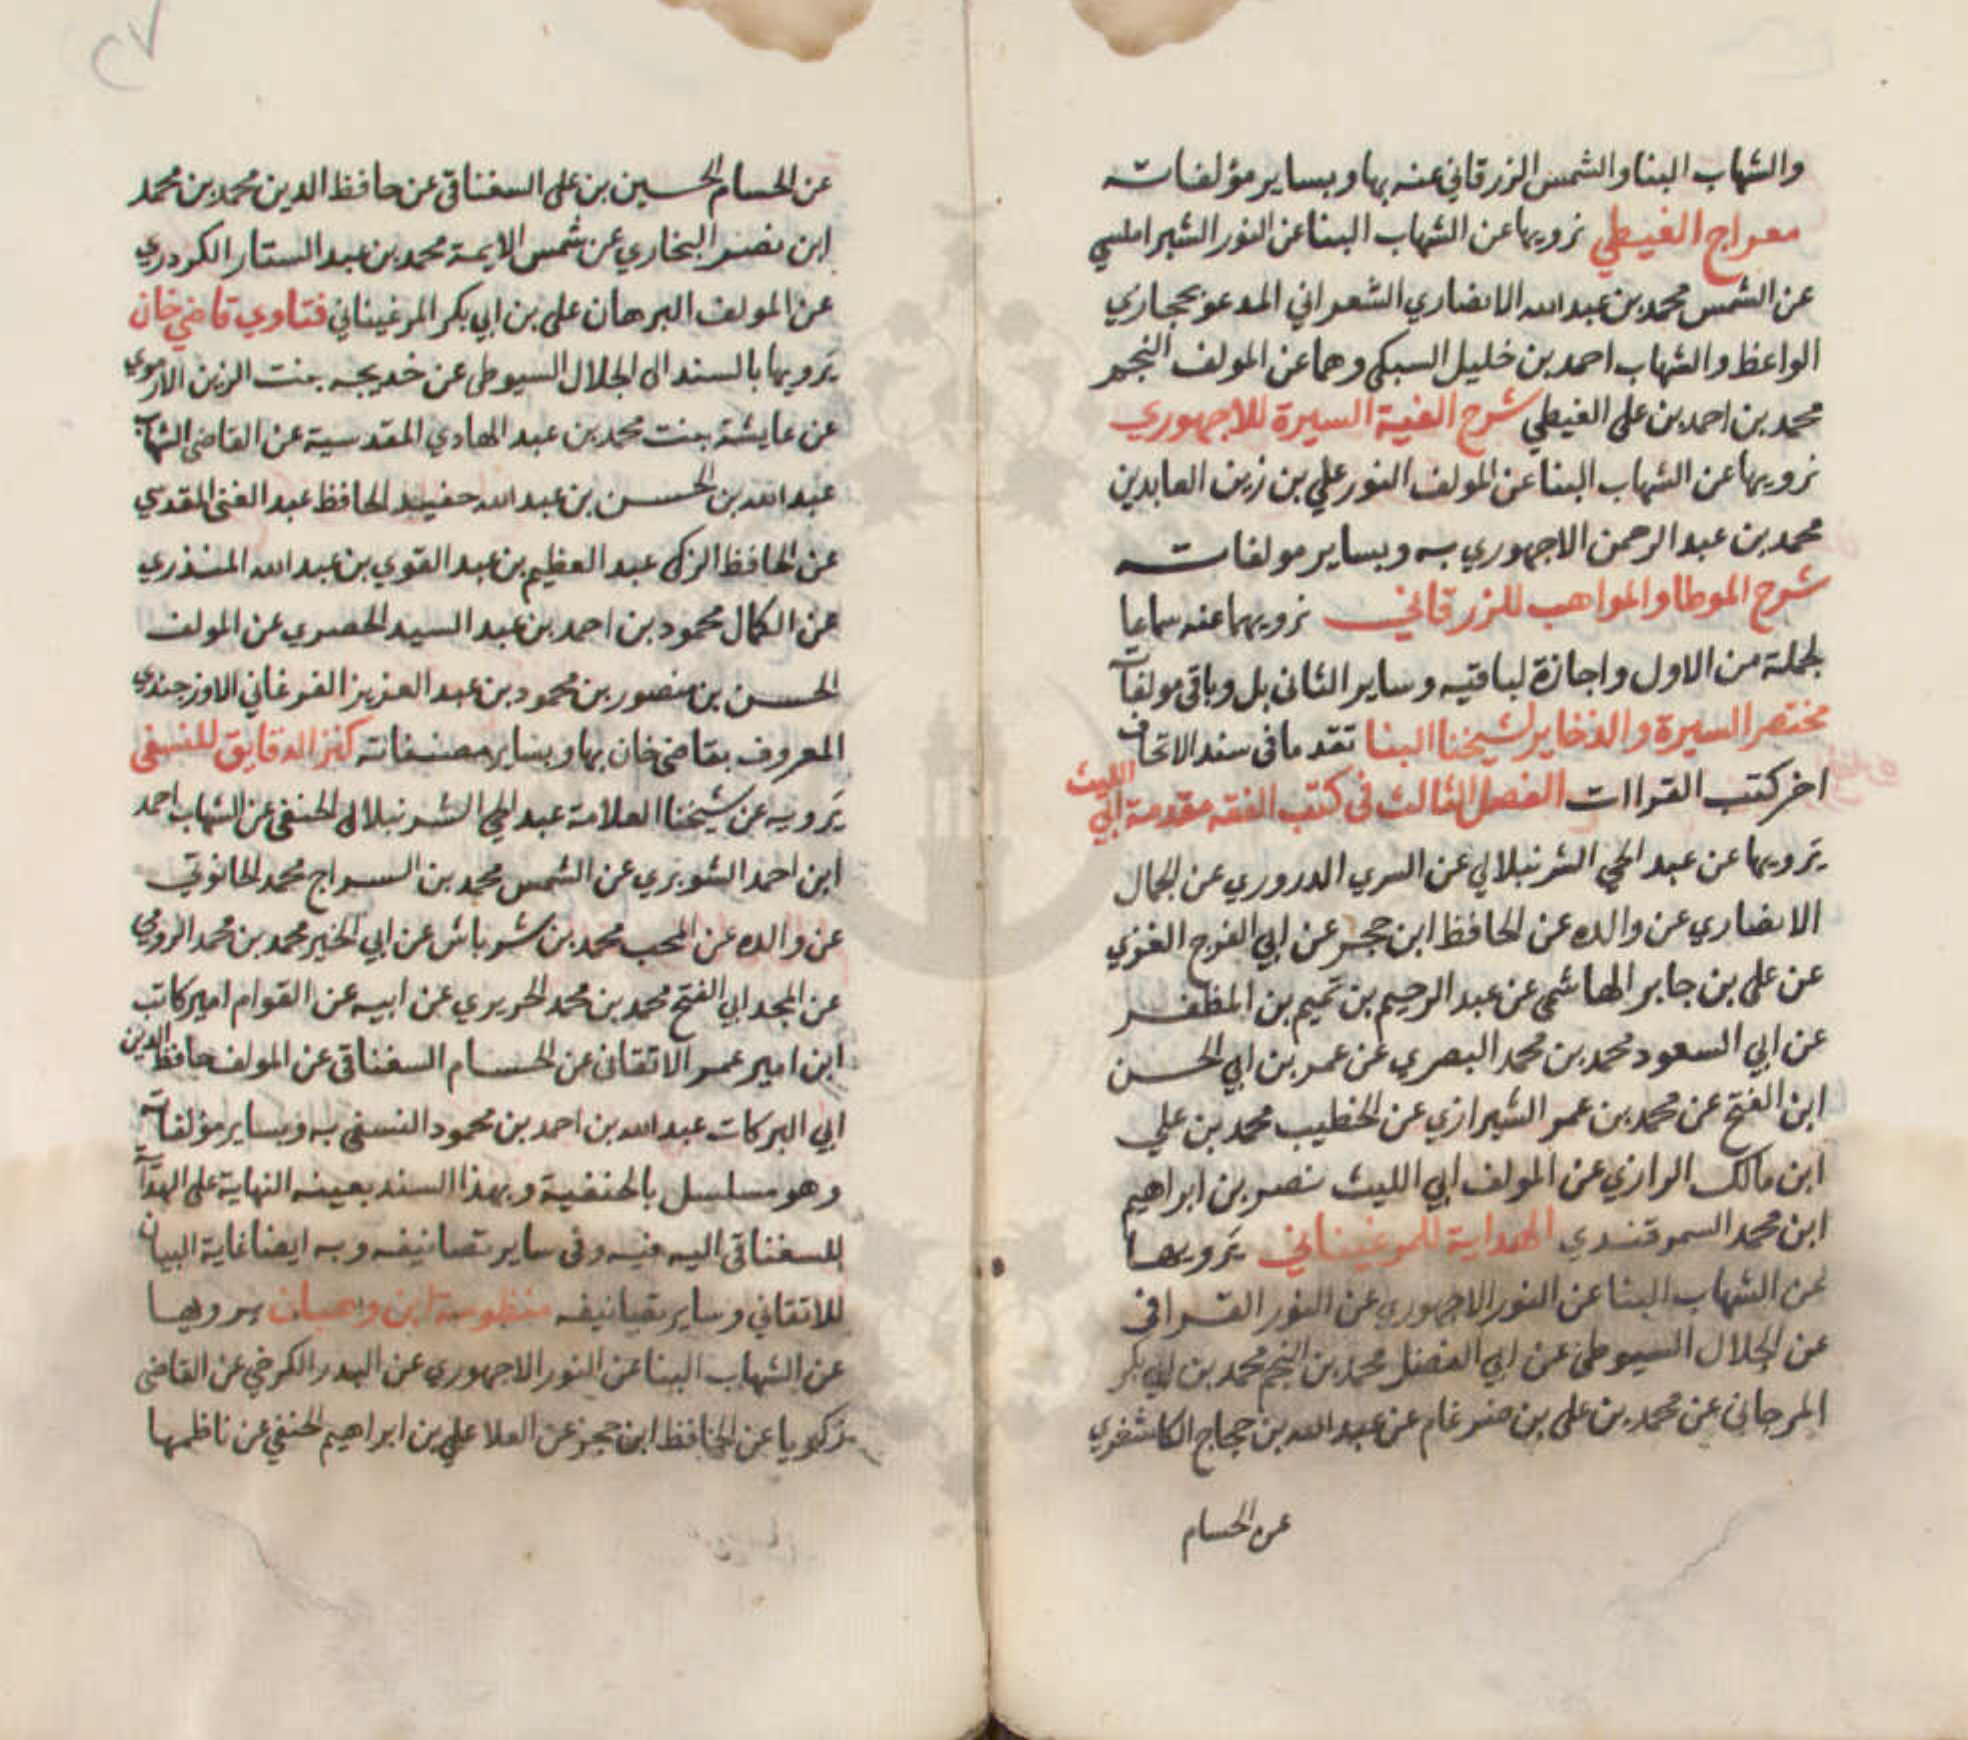 والشهاب البنا والشمس الزرقاني عنه بها وبساير مؤلفاته
معراج الغيطي نرويها عن الشهاب البنا عن النور الشبراملسي
عن الشمس محمد بن عبد الله الانصاري الشعراني المدعو بحجازي
الواعظ والشهاب احمد بن خليل السبكي وهما عن المولف النجم
محمد بن احمد بن علي الغيطي شرح الفية السيرة للاجهوري
نرويها عن الشهاب البنا عن المولف النور علي بن زين العابدين
محمد بن عبد الرحمن الاجهوري به وبساير مولفاته
شرح الموطا والمواهب للزرقاني نرويهما عنه سماعا
لجملة من الاول واجازة لباقيه وساير الثاني بل وباقي مولفاته
مختصر السيرة والذخاير لشيخنا البنا تقدما في سند الاتحاف
اخر كتب القراات الفصل الثالث في كتب الفقه مقدمة ابي الليث
يرويها عن عبد الحي الشرنبلالي عن السري الدروري عن الجمال
الانصاري عن والده عن الحافظ ابن حجر عن ابي الفرج الغزي
عن علي بن جابر الهاشمي عن عبد الرحيم بن تميم بن المظفر
عن ابي السعود محمد بن محمد البصري عن عمر بن ابي الحسن
ابن الفتح عن محمد بن عمر الشيرازي عن الخطيب محمد بن علي
ابن مالك الرازي عن المولف ابي الليث نصر بن ابراهيم
ابن محمد السمرقندي الهداية للمرغيناني يرويها
عن الشهاب البنا عن النور الاجهوري عن النور القرافي
عن الجلال السيوطي عن ابي الفضل محمد بن النجم محمد بن ابي بكر
المرجاني عن محمد بن علي بن ضرغام عن عبد الله بن حجاج الكاشغري
عن الحسام
٢٧
عن الحسام الحسين بن علي السغناقي عن حافظ الدين محمد بن محمد
ابن نصر البخاري عن شمس الايمة محمد بن عبد الستار الكردري
عن المولف البرهان علي بن ابي بكر المرغيناني فتاوي قاضي خان
يرويها بالسند الى الجلال السيوطي عن خديجه بنت الزين الارموي
عن عايشة بنت محمد بن عبد الهادي المقدسية عن القاضي الشهاب
عبد الله بن الحسن بن عبد الله حفيد الحافظ عبد الغني المقدسي
عن الحافظ الزكي عبد العظيم بن عبد القوي بن عبد الله المنذري
عن الكمال محمود بن احمد بن عبد السيد الحصري عن المولف
الحسن بن منصور بن محمود بن عبد العزيز الفرغاني الاوزجندي
المعروف بقاضي خان بها وبساير مصنفاته كنز الدقايق للنسفي
يرويه عن شيخنا العلامة عبد الحي الشرنبلالي الحنفي عن الشهاب احمد
ابن احمد الشوبري عن الشمس محمد بن السراج محمد الحانوتي
عن والده عن المحب محمد بن شرباش عن ابي الخير محمد بن محمد الرومي
عن المجد ابي الفتح محمد بن محمد الحريري عن ابيه عن القوام امير كاتب
ابن امير عمر الاتقاني عن الحسام السغناقي عن المولف حافظ الدين
ابي البركات عبد الله بن احمد بن محمود النسفي به وبساير مؤلفاته
وهو مسلسل بالحنفية وبهذا السند بعينه النهاية على الهداية
للسغناقي اليه فيه وفي ساير تصانيفه وبه ايضا غاية البيان
للاتقاني وساير تصانيفه منظومة ابن وهبان يرويها
عن الشهاب البنا عن النور الاجهوري عن البدر الكرخي عن القاضي
زكريا عن الحافظ ابن حجر عن العلا علي بن ابراهيم الحنفي عن ناظمها